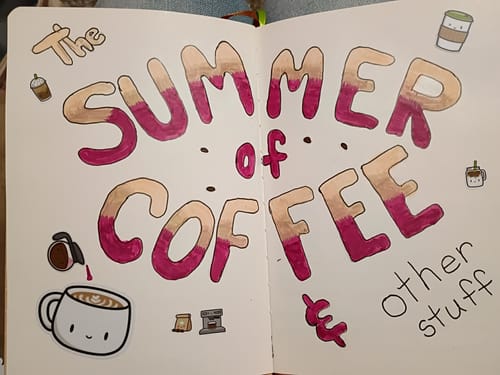 The
SUMMER
of
COFFEE
&
other
stuff